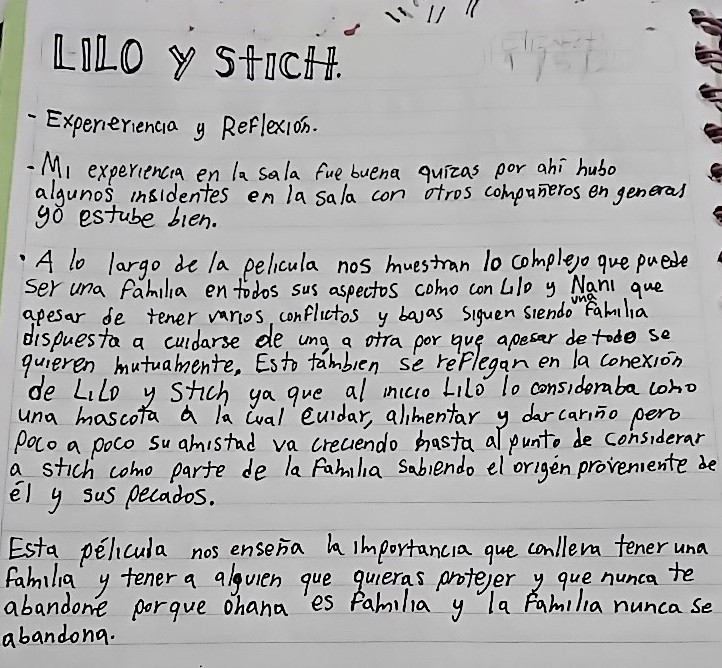 LILO y StICH.
- Experieriencia y Reflexión.
- Mi experiencia en la sala fue buena quizas por ahí hubo
algunos insidentes en la sala con otros compañeros en general
yo estube bien.
· A lo largo de la pelicula nos muestran lo complejo que puede
ser una familia en todos sus aspectos como con Lilo y Nani que
apesar de tener varios conflictos y bajas siguen siendo una familia
dispuesta a cuidarse de una a otra por que apesar de todo se
quieren mutuamente. Esto también se reflegan en la conexión
de LiLo y Stich ya que al inicio Lilo lo consideraba como
una mascota a la cual cuidar, alimentar y dar cariño pero
poco a poco su amistad va creciendo hasta al punto de considerar
a stich como parte de la familia sabiendo el origén proveniente de
él y sus pecados.
Esta pélicula nos enseña la importancia que conlleva tener una
familia y tener a alguien que quieras protejer y que nunca te
abandone porque ohana es familia y la familia nunca se
abandona.